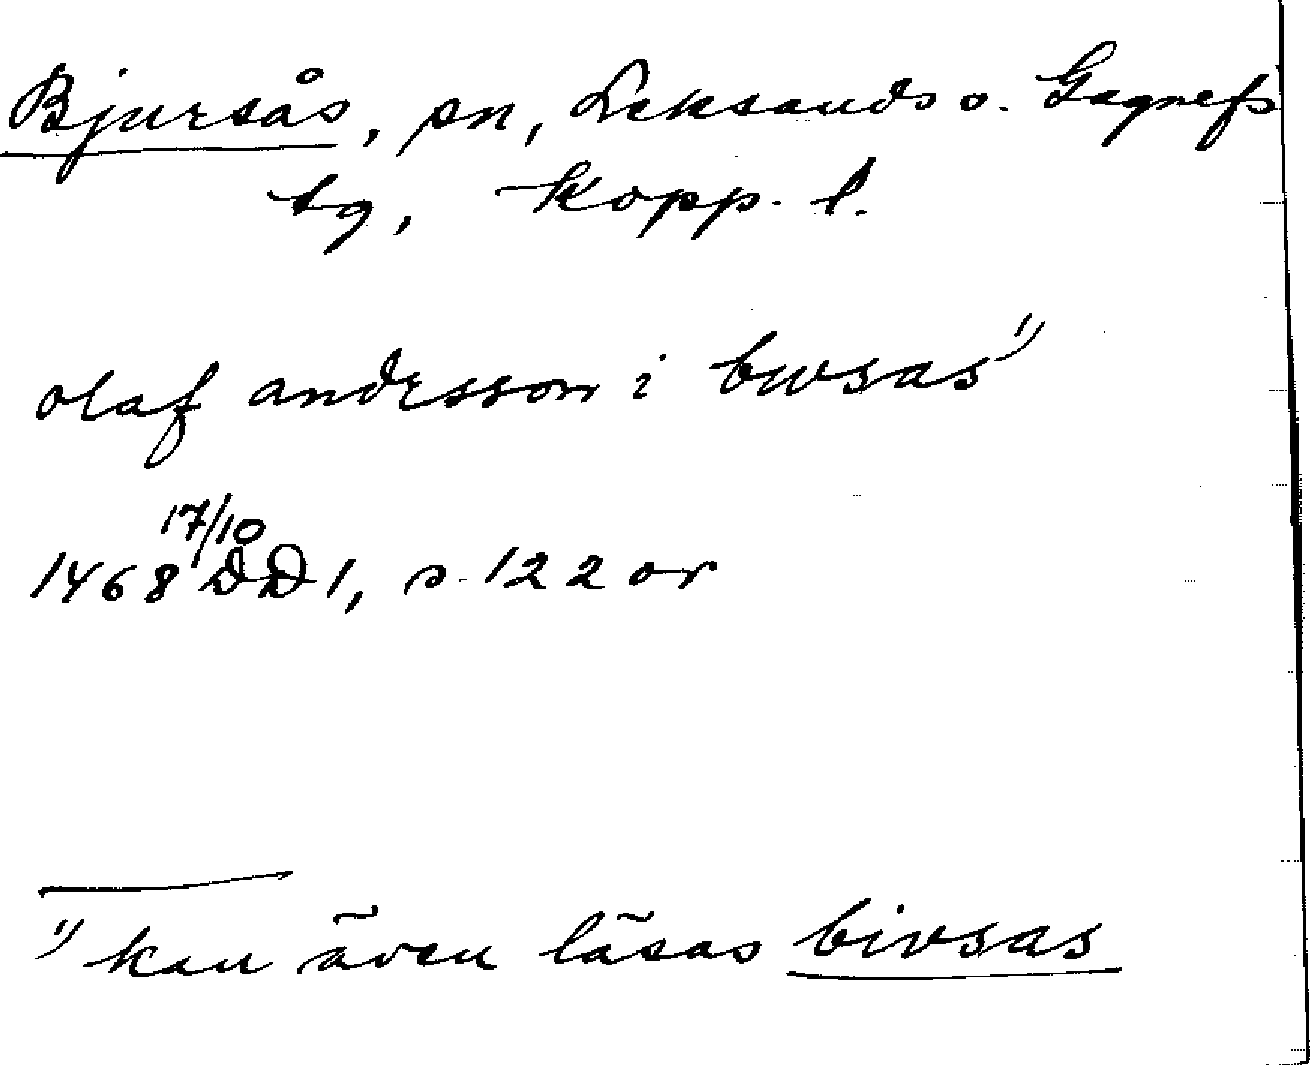 Bjursås, sn, Leksands o. Gagnefs
tg, Kopp. l.
olaf andersson i buvsas 1)
17/10
1468 DD 1, s. 122 or
1) kan även läsas bivsas